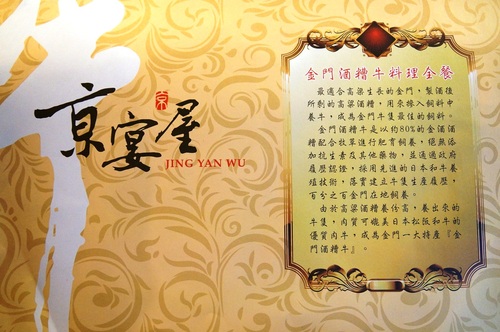 京宴屋
京
JING YAN WU
金門酒糟牛料理全餐
最適合高粱生長的金門，製酒後
所剩的高粱酒糟，用來摻入飼料中
養牛，成為金門牛隻最佳的飼料。
金門酒糟牛是以約80%的金酒酒
糟配合牧草進行肥育飼養，絕無添
加抗生素及其他藥物，並通過政府
履歷認證，採用先進的日本和牛養
殖技術，落實建立牛隻生產履歷，
百分之百金門在地飼養。
由於高粱酒糟養份高，養出來的
牛隻，肉質可媲美日本松阪和牛的
優質肉牛，成為金門一大特產『金
門酒糟牛』。